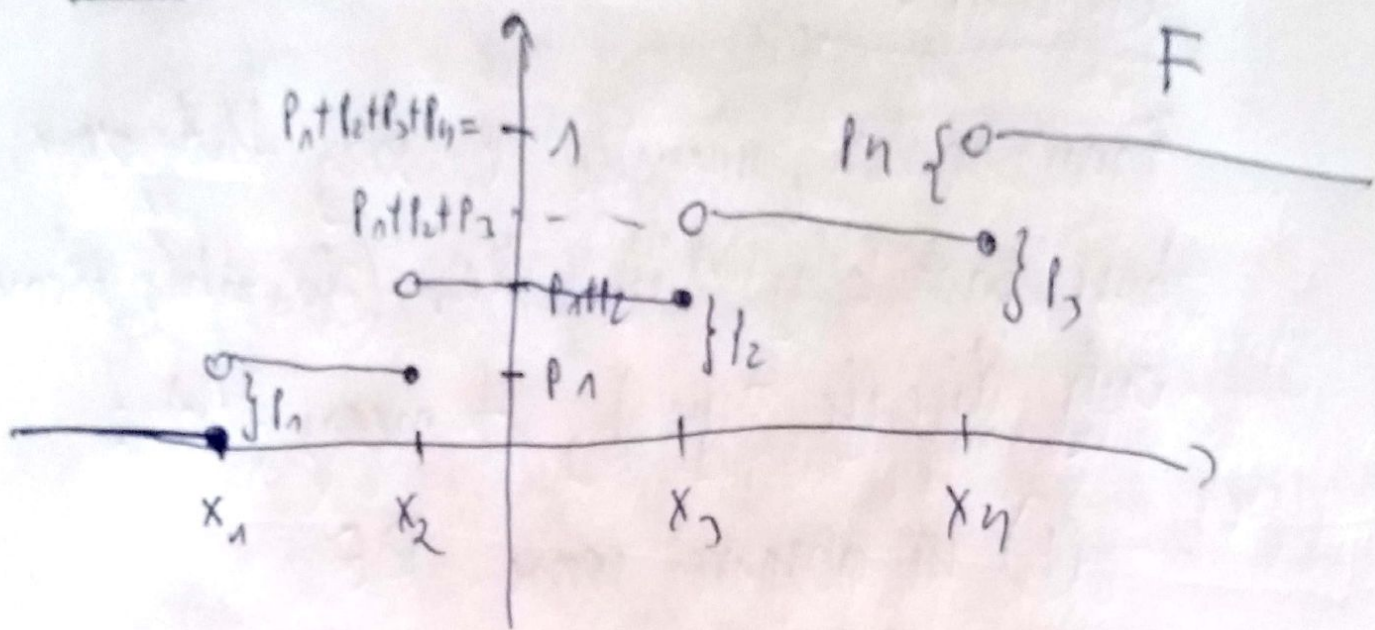 F
P₁+P₂+P₃+P₄= 1
P₄ {
P₁+P₂+P₃
P₁+P₂
} P₃
} P₂
} P₁
P₁
x₁ x₂ x₃ x₄